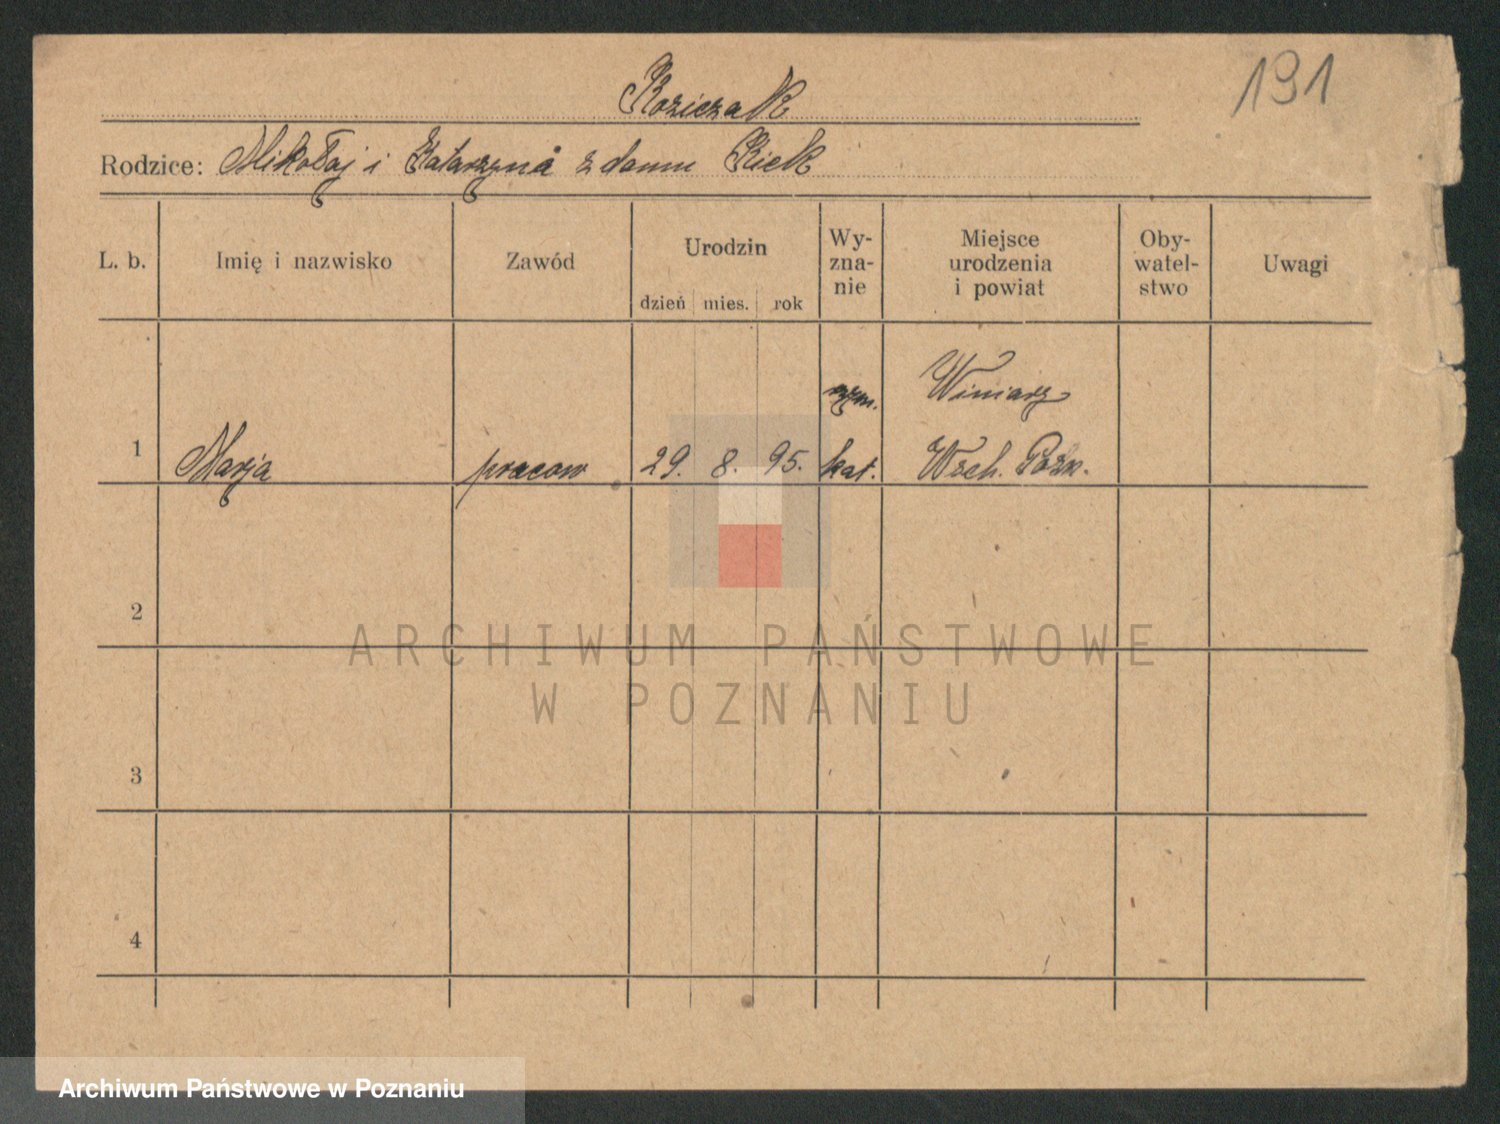 191
Koziczak
Rodzice: Mikołaj i Katarzyna z domu Kick
L. b. Imię i nazwisko Zawód Urodzin dzień mies. rok Wy-zna-nie Miejsce urodzenia i powiat Oby-watel-stwo Uwagi
rzm. Winiary
1 Marja pracow 29. 8. 95. kat. Wsch. Pozn.
2
3
4
ARCHIWUM PAŃSTWOWE
W POZNANIU
Archiwum Państwowe w Poznaniu